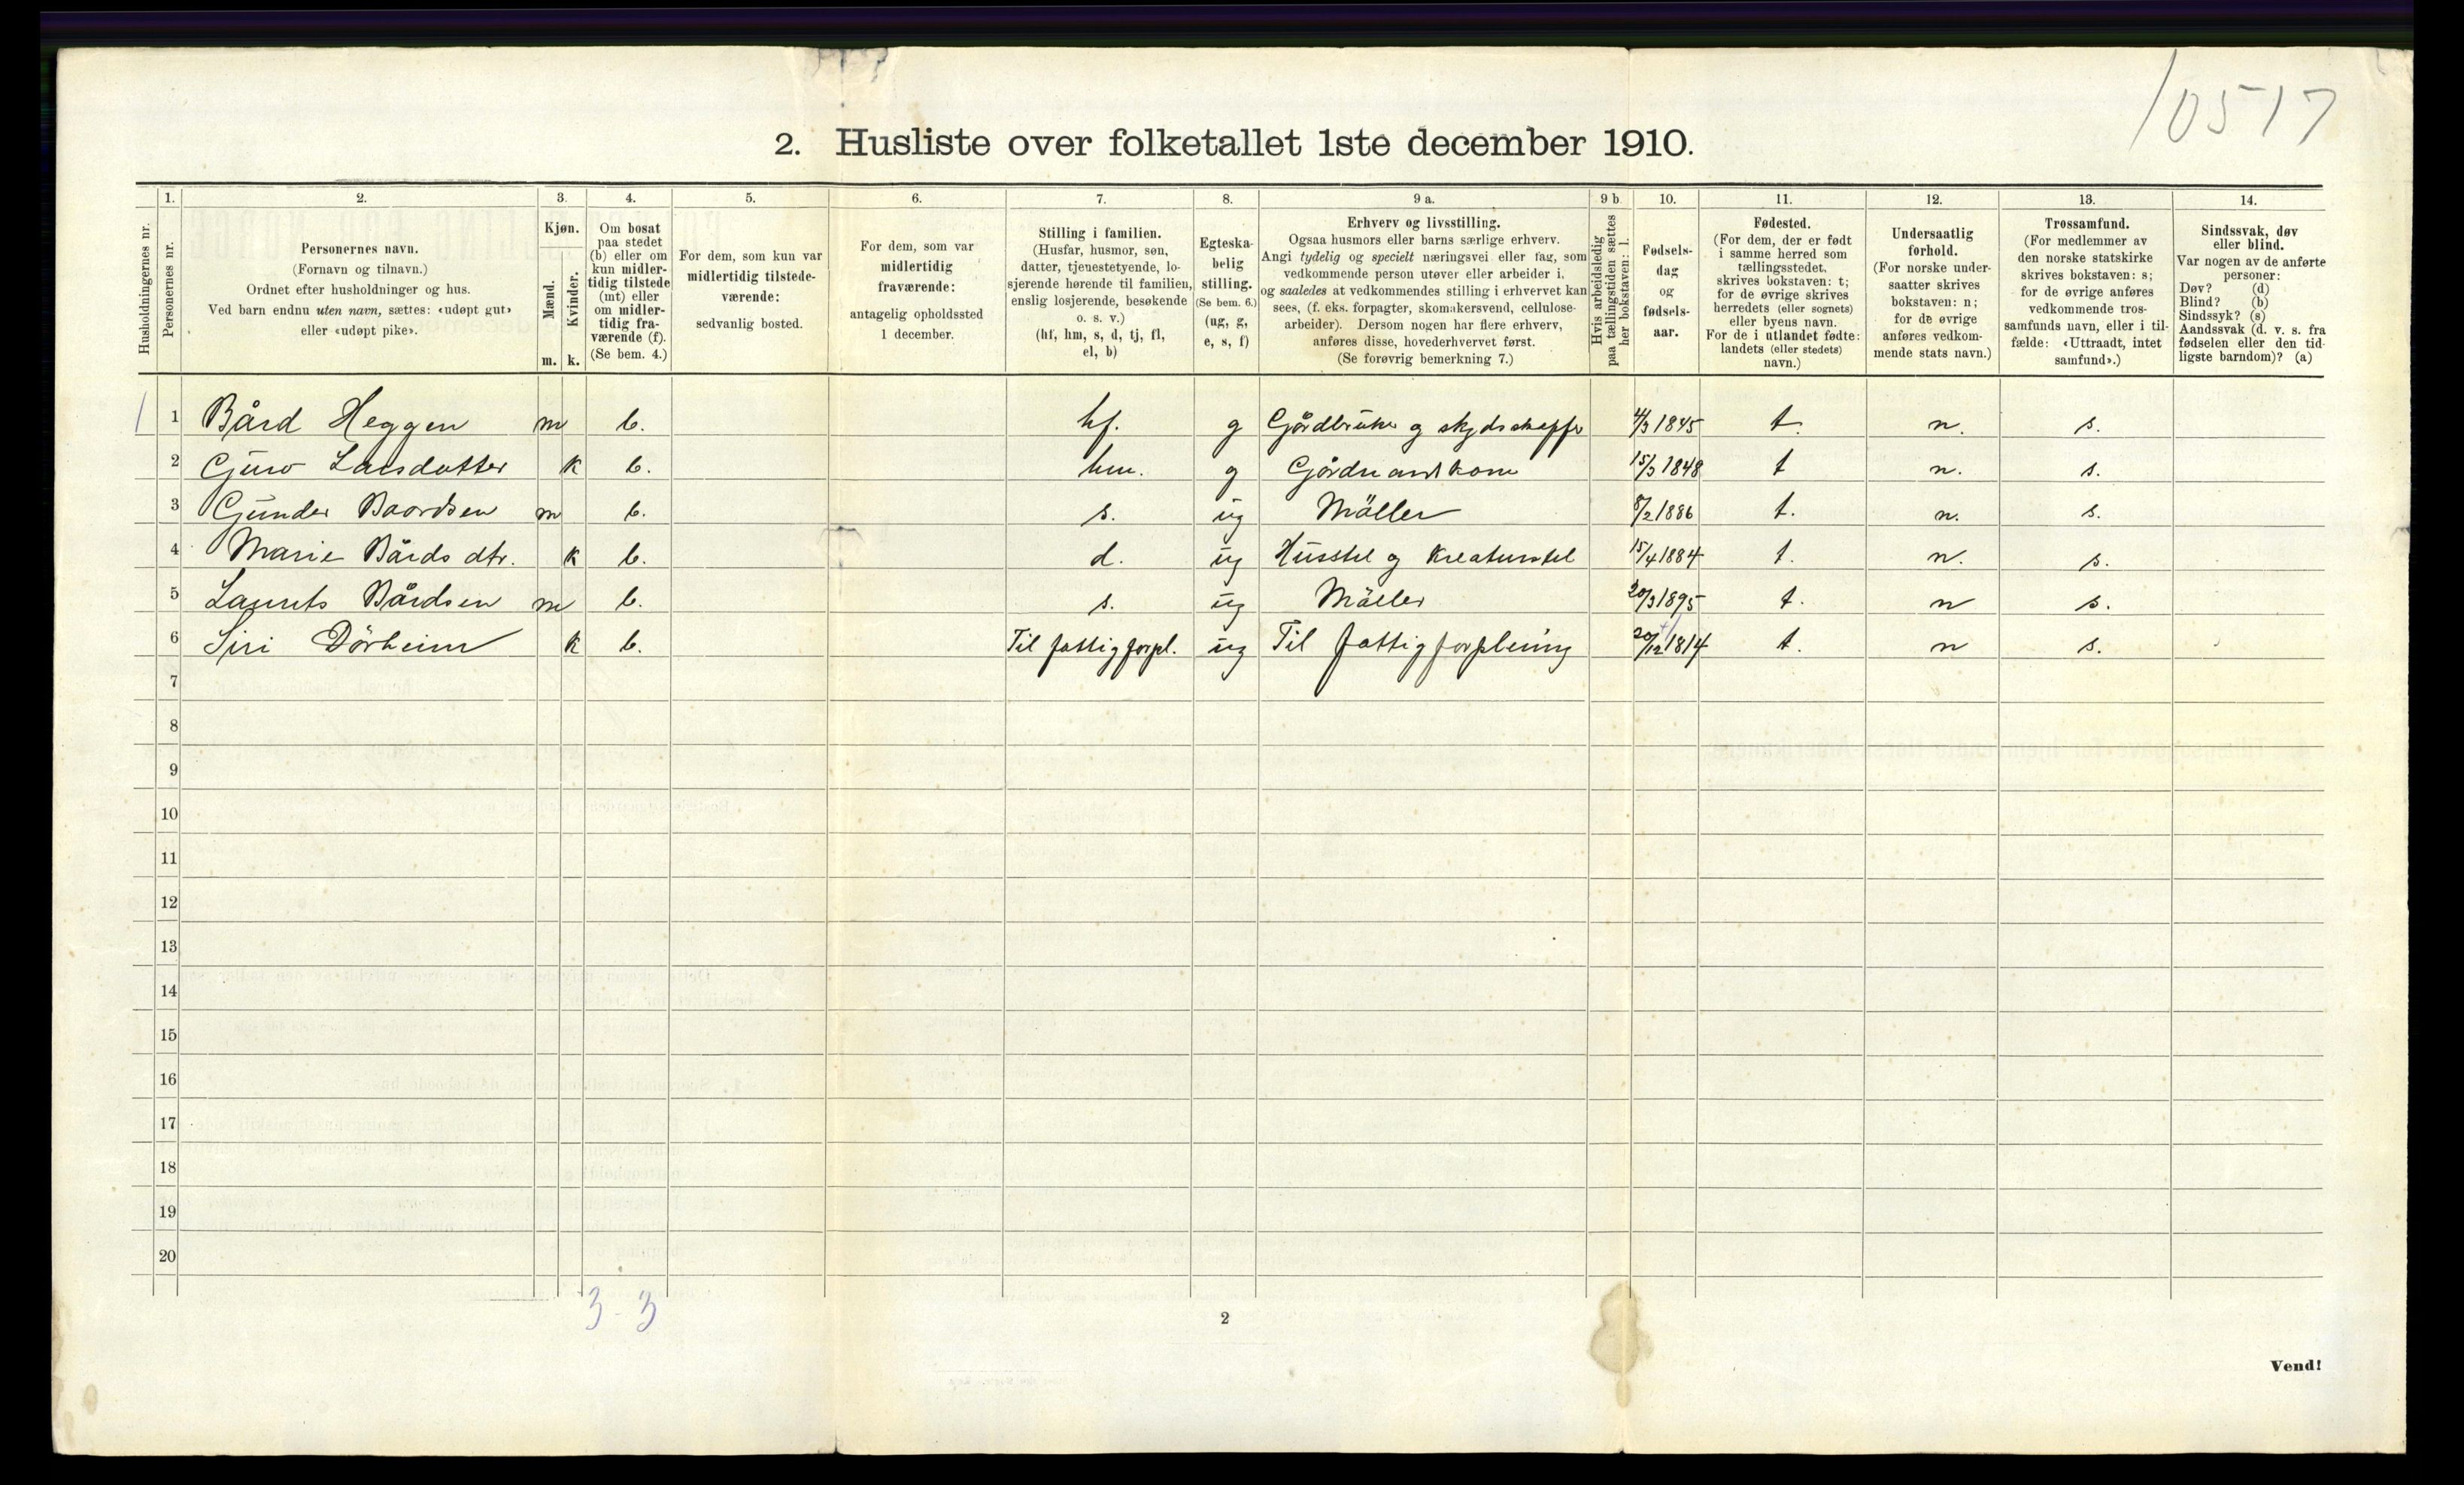 10517
2. Husliste over folketallet 1ste december 1910.
Husholdningernes nr.
1.
Personernes nr.
2.
Personernes navn.
(Fornavn og tilnavn.)
Ordnet efter husholdninger og hus.
Ved barn endnu uten navn, sættes: «udøpt gut»
eller «udøpt pike».
3.
Kjøn.
Mænd.
Kvinder.
m. k.
4.
Om bosat
paa stedet
(b) eller om
kun midler-
tidig tilstede
(mt) eller
om midler-
tidig fra-
værende (f).
(Se bem. 4.)
5.
For dem, som kun var
midlertidig tilstede-
værende:
sedvanlig bosted.
6.
For dem, som var
midlertidig
fraværende:
antagelig opholdssted
1 december.
7.
Stilling i familien.
(Husfar, husmor, søn,
datter, tjenestetyende, lo-
sjerende hørende til familien,
enslig losjerende, besøkende
o. s. v.)
(hf, hm, s, d, tj, fl,
el, b)
8.
Egteska-
belig
stilling.
(Se bem. 6.)
(ug, g,
e, s, f)
9 a.
Erhverv og livsstilling.
Ogsaa husmors eller barns særlige erhverv.
Angi tydelig og specielt næringsvei eller fag, som
vedkommende person utøver eller arbeider i,
og saaledes at vedkommendes stilling i erhvervet kan
sees, (f. eks. forpagter, skomakersvend, cellulose-
arbeider). Dersom nogen har flere erhverv,
anføres disse, hovederhvervet først.
(Se forøvrig bemerkning 7.)
9 b.
Hvis arbeidsledig
paa tællingstiden sættes
her bokstaven: l.
10.
Fødsels-
dag
og
fødsels-
aar.
11.
Fødested.
(For dem, der er født
i samme herred som
tællingsstedet,
skrives bokstaven: t;
for de øvrige skrives
herredets (eller sognets)
eller byens navn.
For de i utlandet fødte:
landets (eller stedets)
navn.)
12.
Undersaatlig
forhold.
(For norske under-
saatter skrives
bokstaven: n;
for de øvrige
anføres vedkom-
mende stats navn.)
13.
Trossamfund.
(For medlemmer av
den norske statskirke
skrives bokstaven: s;
for de øvrige anføres
vedkommende tros-
samfunds navn, eller i til-
fælde: «Uttraadt, intet
samfund».)
14.
Sindssvak, døv
eller blind.
Var nogen av de anførte
personer:
Døv? (d)
Blind? (b)
Sindssyk? (s)
Aandssvak (d. v. s. fra
fødselen eller den tid-
ligste barndom)? (a)
1 1 Bård Heggen m b. hf. g Gårdbruker g skydsskaffer 4/3 1845 t. n. s.
2 Guro Larsdatter k b. hm. g Gårdmandskone 15/3 1848 t n. s.
3 Gunder Baardsen m b. s. ug Möller 8/2 1886 t. n. s.
4 Marie Bårdsdtr. k b. d. ug Husstel g Kreaturstel 15/4 1884 t. n. s.
5 Laurits Bårdsen m b. s. ug Möller 20/3 1895 t. n s.
6 Siri Dörheim k b. Til fattigforpl. ug Til fattigforpleining 20/12 1814 t. n s.
7
8
9
10
11
12
13
14
15
16
17
18
19
20
3 - 3
2
Vend!